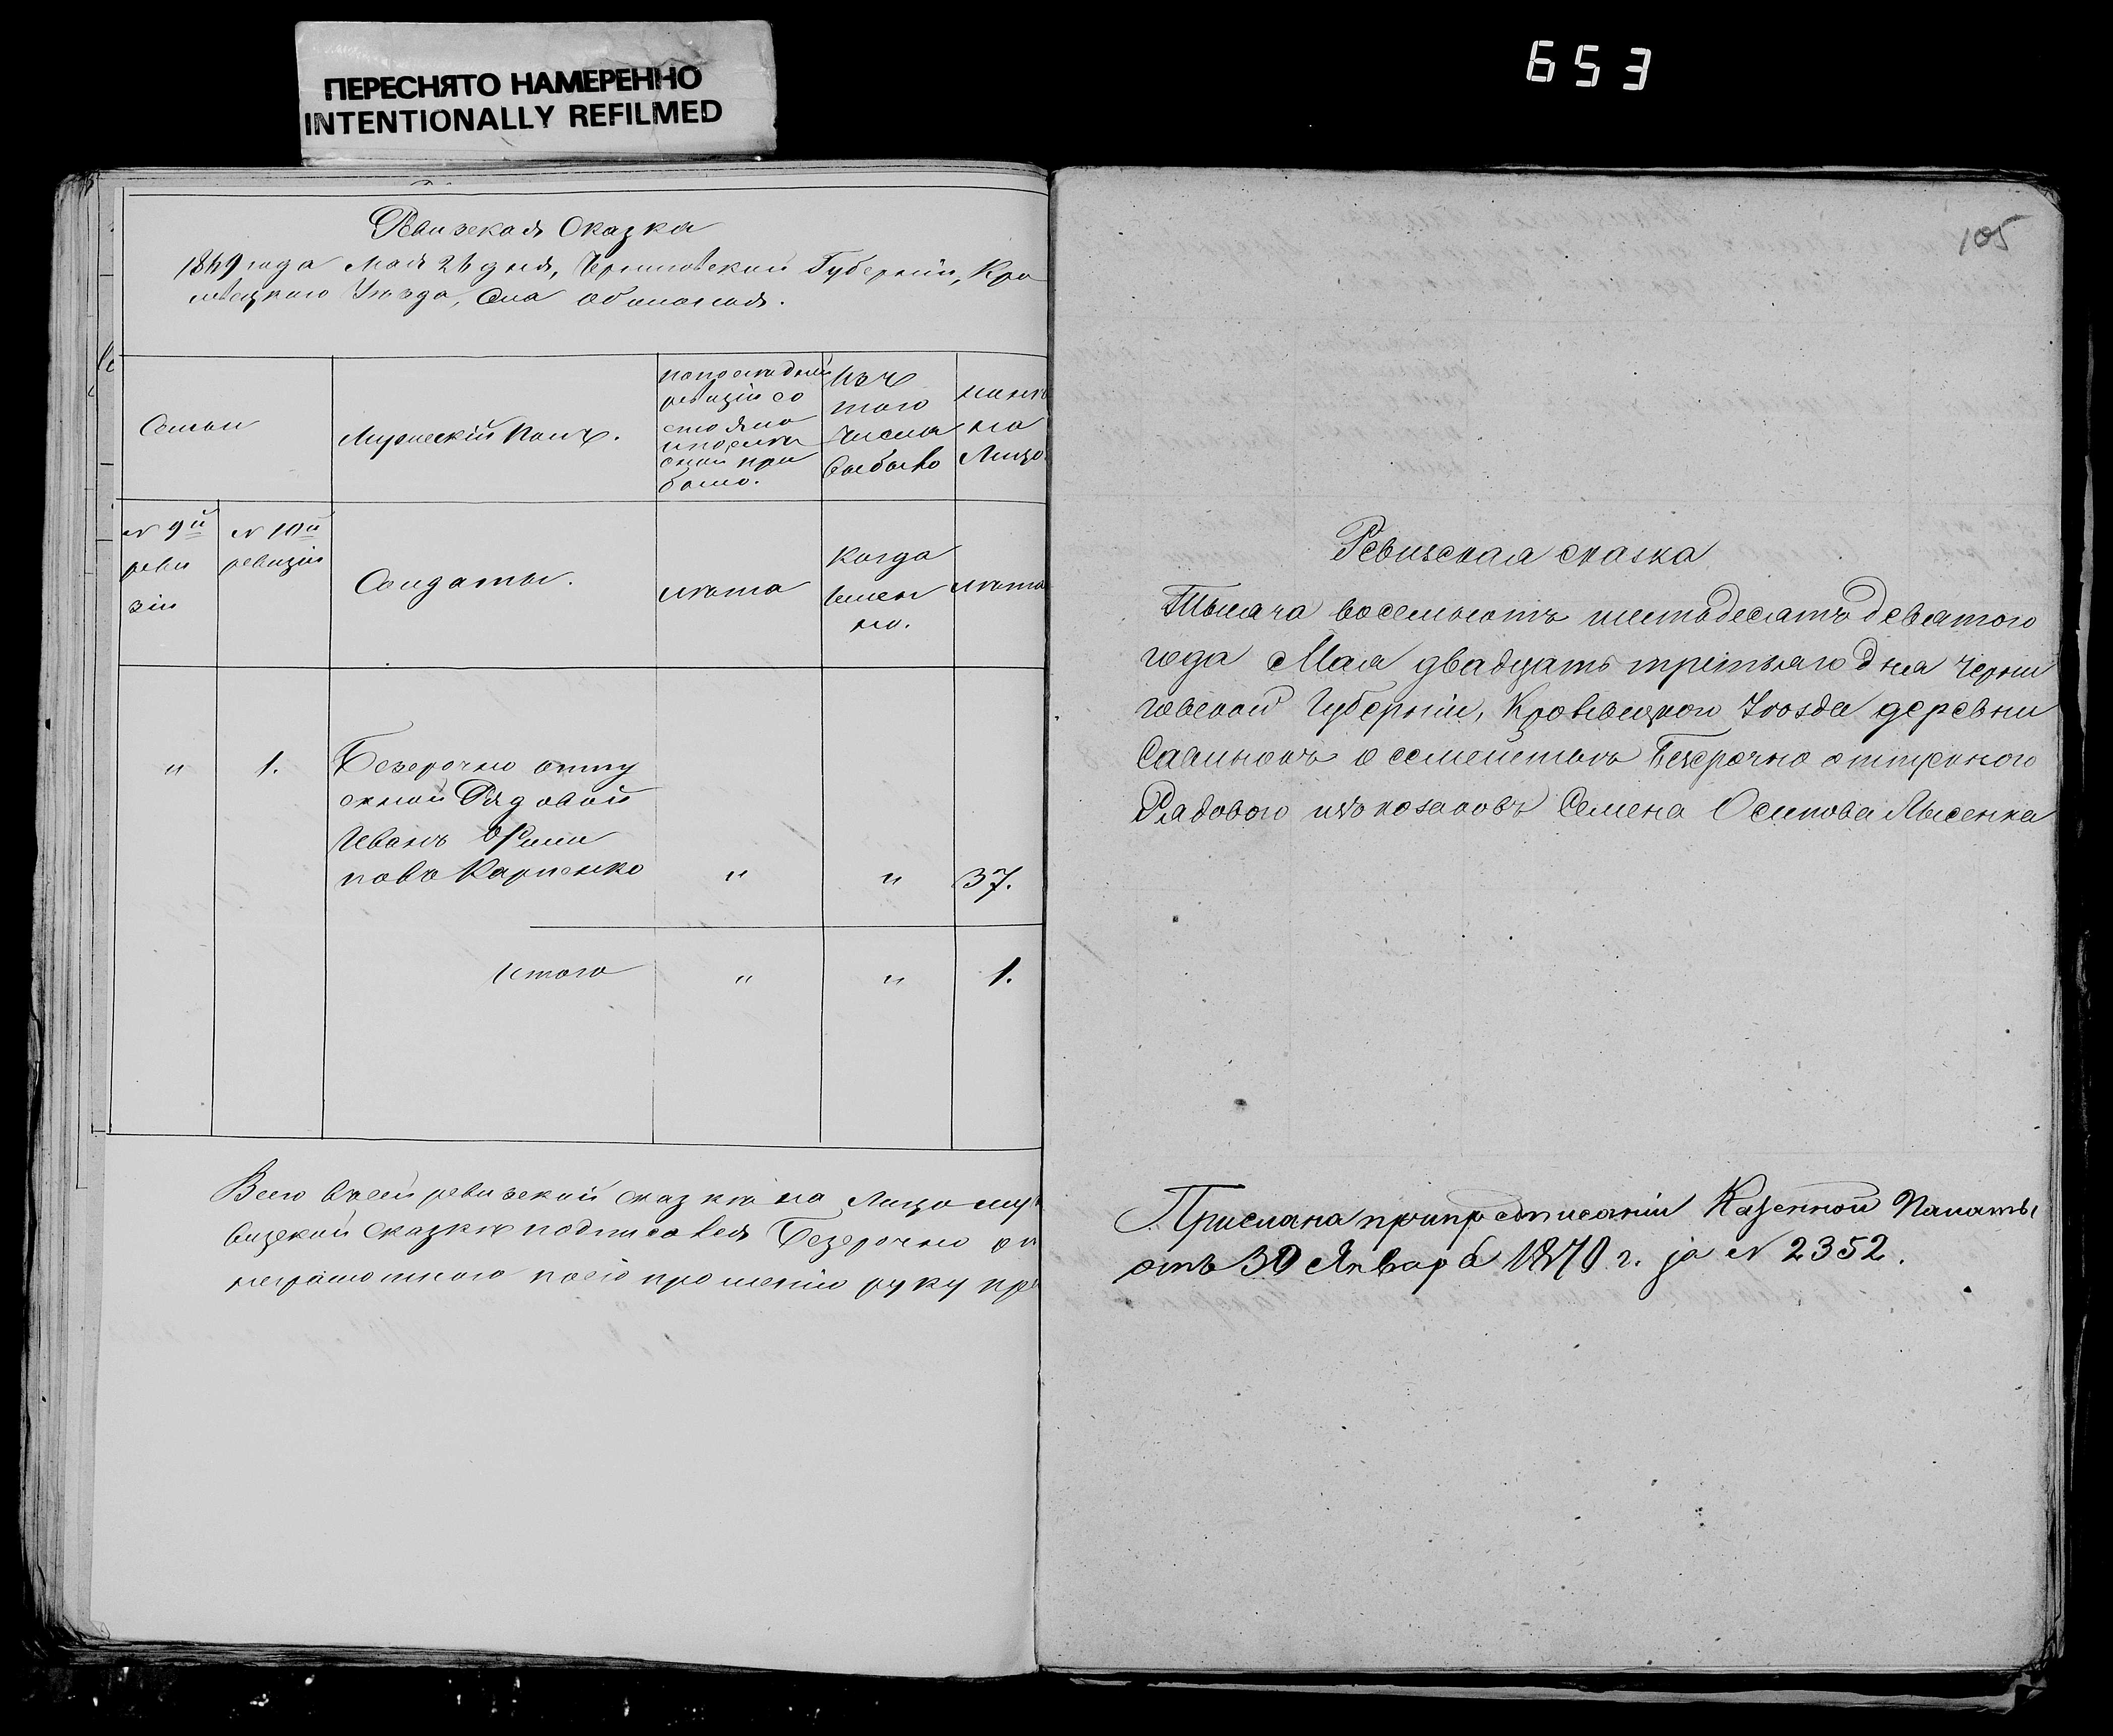 ПЕРЕСНЯТО НАМЕРЕННО
INTENTIONALLY REFILMED
653
Ревизская Сказка
1869 года Мая 26 дня, Черниговской Губерніи, Кро
левецкаго Уезда, Села
Семьи
Мужескій Полъ.
по последней
ревизіи со
стояло
и после
оной при
было.
Изъ
того
числа
выбыло
ныне
на
Лицо
№ 9й
реви
зіи
№ 10й
ревизіи
Солдаты.
лѣта
когда
имен
но.
лѣта
" 1. Безсрочно отпу
скной Рядовой
Иванъ Фили
повъ Карпенко " " 37.
итого " " 1.
Всего в сей ревизской сказкѣ на Лицо му
визской сказкѣ подписался Безсрочно от
неграмотного по его прошению руку при
105
Ревизская сказка
Тысяча восемьсотъ шестьдесятъ девятого
года Мая двадцать третьяго дня Черни
говской Губерніи, Кролевецкого Уезда деревни
о семействѣ Безсрочно отпускного
Рядового изъ козаковъ Семена Осипова Лысенка
Прислана при предписаніи Казенной Палаты
отъ 30 Января 1870 г. за № 2352.